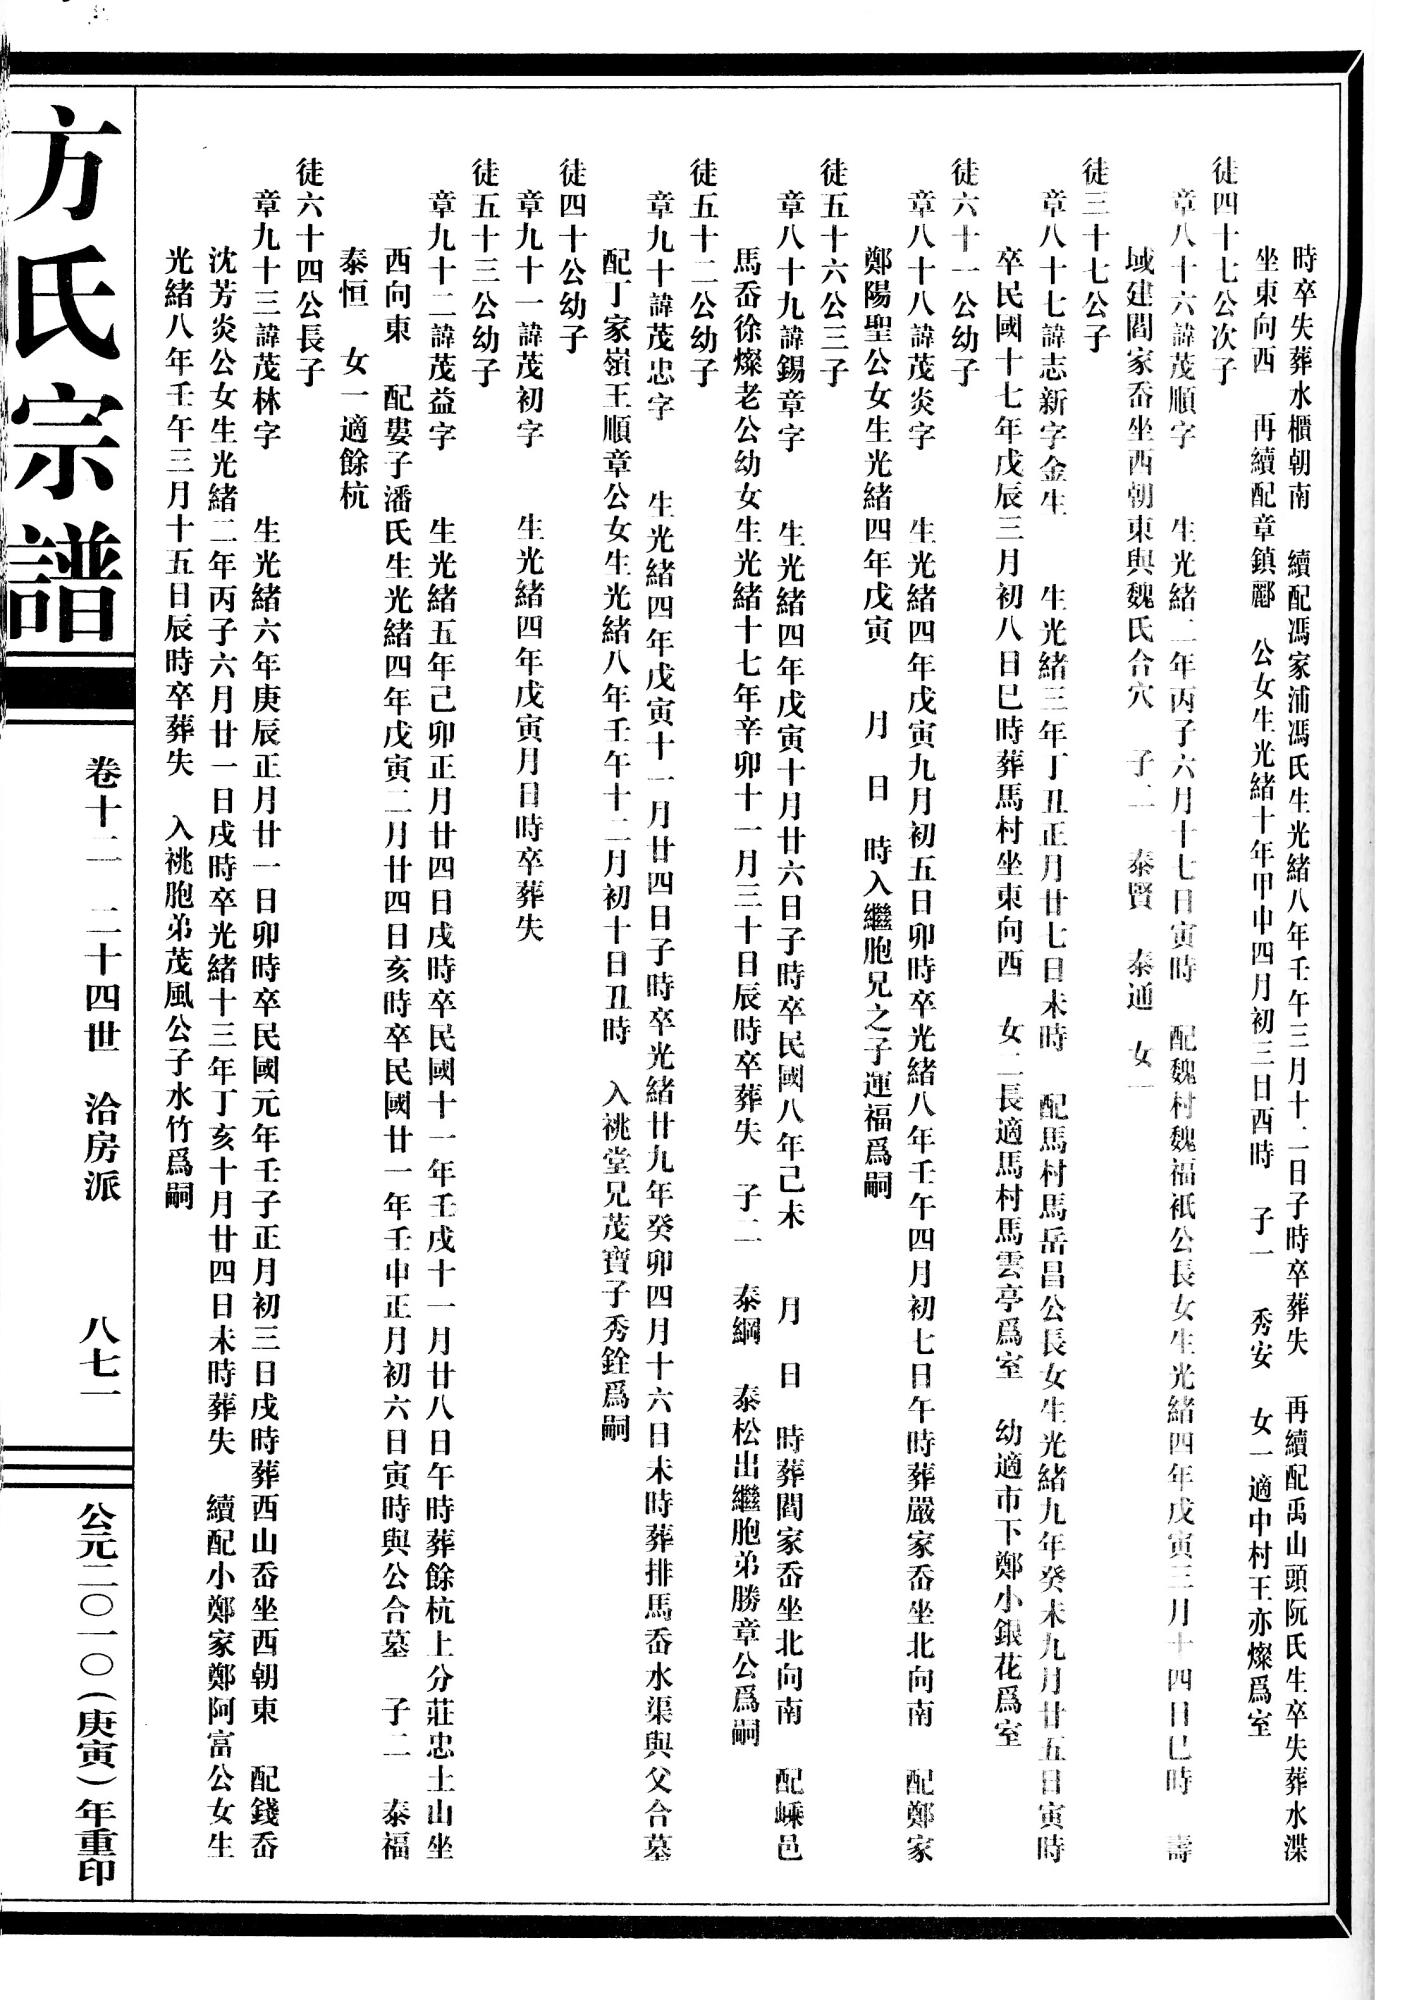 時卒失葬水櫃朝南　續配馮家浦馮氏生光緒八年壬午三月十二日子時卒葬失　再續配禹山頭阮氏生卒失葬水渫
坐東向西　再續配章鎮酈　公女生光緒十年甲申四月初三日酉時　子一　秀安　女一適中村王亦燦爲室
徒四十七公次子
章八十六諱茂順字　生光緒二年丙子六月十七日寅時　配魏村魏福祇公長女生光緒四年戊寅三月十四日巳時　壽
域建閻家岙坐西朝東與魏氏合穴　子二　泰賢　泰通　女一
徒三十七公子
章八十七諱志新字金生　生光緒三年丁丑正月廿七日未時　配馬村馬岳昌公長女生光緒九年癸未九月廿五日寅時
卒民國十七年戊辰三月初八日巳時葬馬村坐東向西　女二長適馬村馬雲亭爲室　幼適市下鄭小銀花爲室
徒六十一公幼子
章八十八諱茂炎字　生光緒四年戊寅九月初五日卯時卒光緒八年壬午四月初七日午時葬嚴家岙坐北向南　配鄭家
鄭陽聖公女生光緒四年戊寅　月　日　時入繼胞兄之子運福爲嗣
徒五十六公三子
章八十九諱錫章字　生光緒四年戊寅十月廿六日子時卒民國八年己未　月　日　時葬閻家岙坐北向南　配嵊邑
馬岙徐燦老公幼女生光緒十七年辛卯十一月三十日辰時卒葬失　子二　泰綱　泰松出繼胞弟勝章公爲嗣
徒五十二公幼子
章九十諱茂忠字　生光緒四年戊寅十一月廿四日子時卒光緒廿九年癸卯四月十六日未時葬排馬岙水渠與父合墓
配丁家嶺王順章公女生光緒八年壬午十二月初十日丑時　入祧堂兄茂寶子秀銓爲嗣
徒四十公幼子
章九十一諱茂初字　生光緒四年戊寅月日時卒葬失
徒五十三公幼子
章九十二諱茂益字　生光緒五年己卯正月廿四日戌時卒民國十一年壬戌十一月廿八日午時葬餘杭上分莊忠土山坐
西向東　配婁子潘氏生光緒四年戊寅二月廿四日亥時卒民國廿一年壬申正月初六日寅時與公合墓　子二　泰福
泰恒　女一適餘杭
徒六十四公長子
章九十三諱茂林字　生光緒六年庚辰正月廿一日卯時卒民國元年壬子正月初三日戌時葬西山岙坐西朝東　配錢岙
沈芳炎公女生光緒二年丙子六月廿一日戌時卒光緒十三年丁亥十月廿四日未時葬失　續配小鄭家鄭阿富公女生
光緒八年壬午三月十五日辰時卒葬失　入祧胞弟茂風公子水竹爲嗣
方氏宗譜
卷十二　二十四世　洽房派　八七一
公元二〇一〇（庚寅）年重印